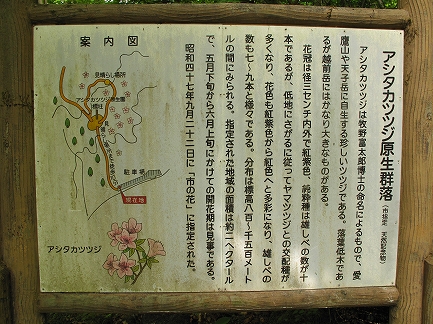 アシタカツツジ原生群落
(市指定 天然記念物)
アシタカツツジは牧野富太郎博士の命名によるもので、愛
鷹山や天子岳に自生する珍しいツツジである。落葉低木であ
るが越前岳にはかなり大きなものがある。
花冠は径三センチ内外で紅紫色、純粋種は雄しべの数が十
本であるが、低地にさがるに従ってヤマツツジとの交配種が
多くなり、花色も紅紫色から紅色へと多彩になり、雄しべの
数も七〜九本と様々である。分布は標高八百〜千五百メート
ルの間にみられる。指定された地域の面積は約二ヘクタール
で、五月下旬から六月上旬にかけての開花期は見事である。
昭和四十七年九月二十二日に「市の花」に指定された。
案内図
見晴らし場所
アシタカツツジ原生園
駐車場
現在地
アシタカツツジ